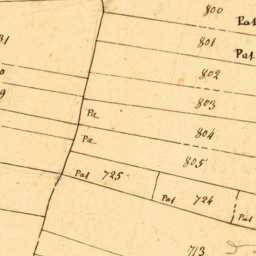 800
Pat
801
Pat
802
803
Pa
804
Pa
805
Pat 725
Pat 724
Pat
713